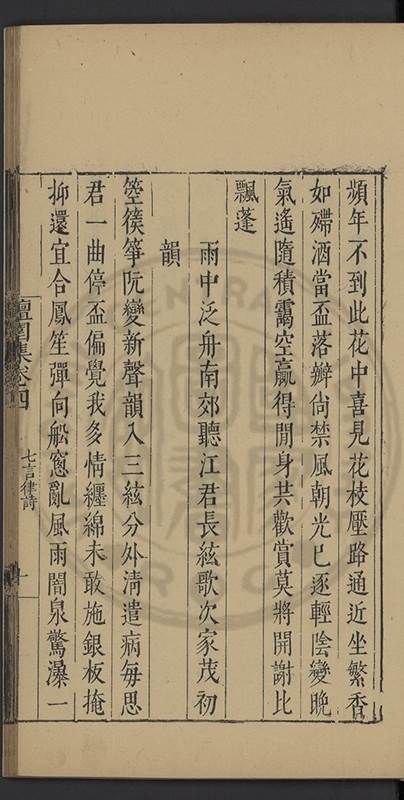 頻年不到此花中喜見花枝壓路通近坐繁香
如殢酒當盃落瓣尙禁風朝光已逐輕陰變晚
氣遙隨積靄空贏得閒身共歡賞莫將開謝比
飄蓬
雨中泛舟南郊聽江君長絃歌次家茂初
韻
箜篌箏阮變新聲韻入三絃分外淸遣病每思
君一曲停盃偏覺我多情纏綿未敢施銀板掩
抑還宜合鳳笙彈向船窻亂風雨闇泉驚瀑一
檀園集卷四
七言律詩